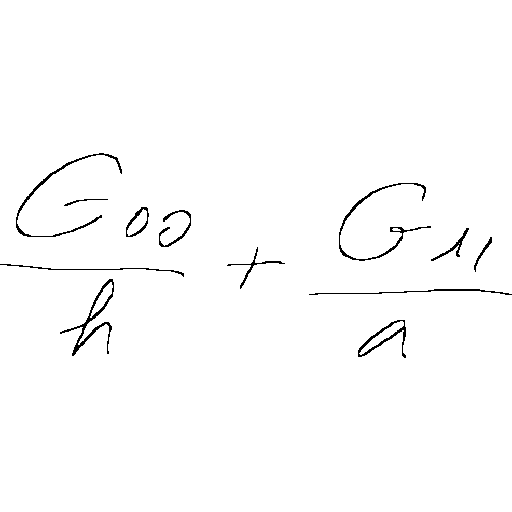 \frac{G_{00}}{h} + \frac{G_{11}}{a}